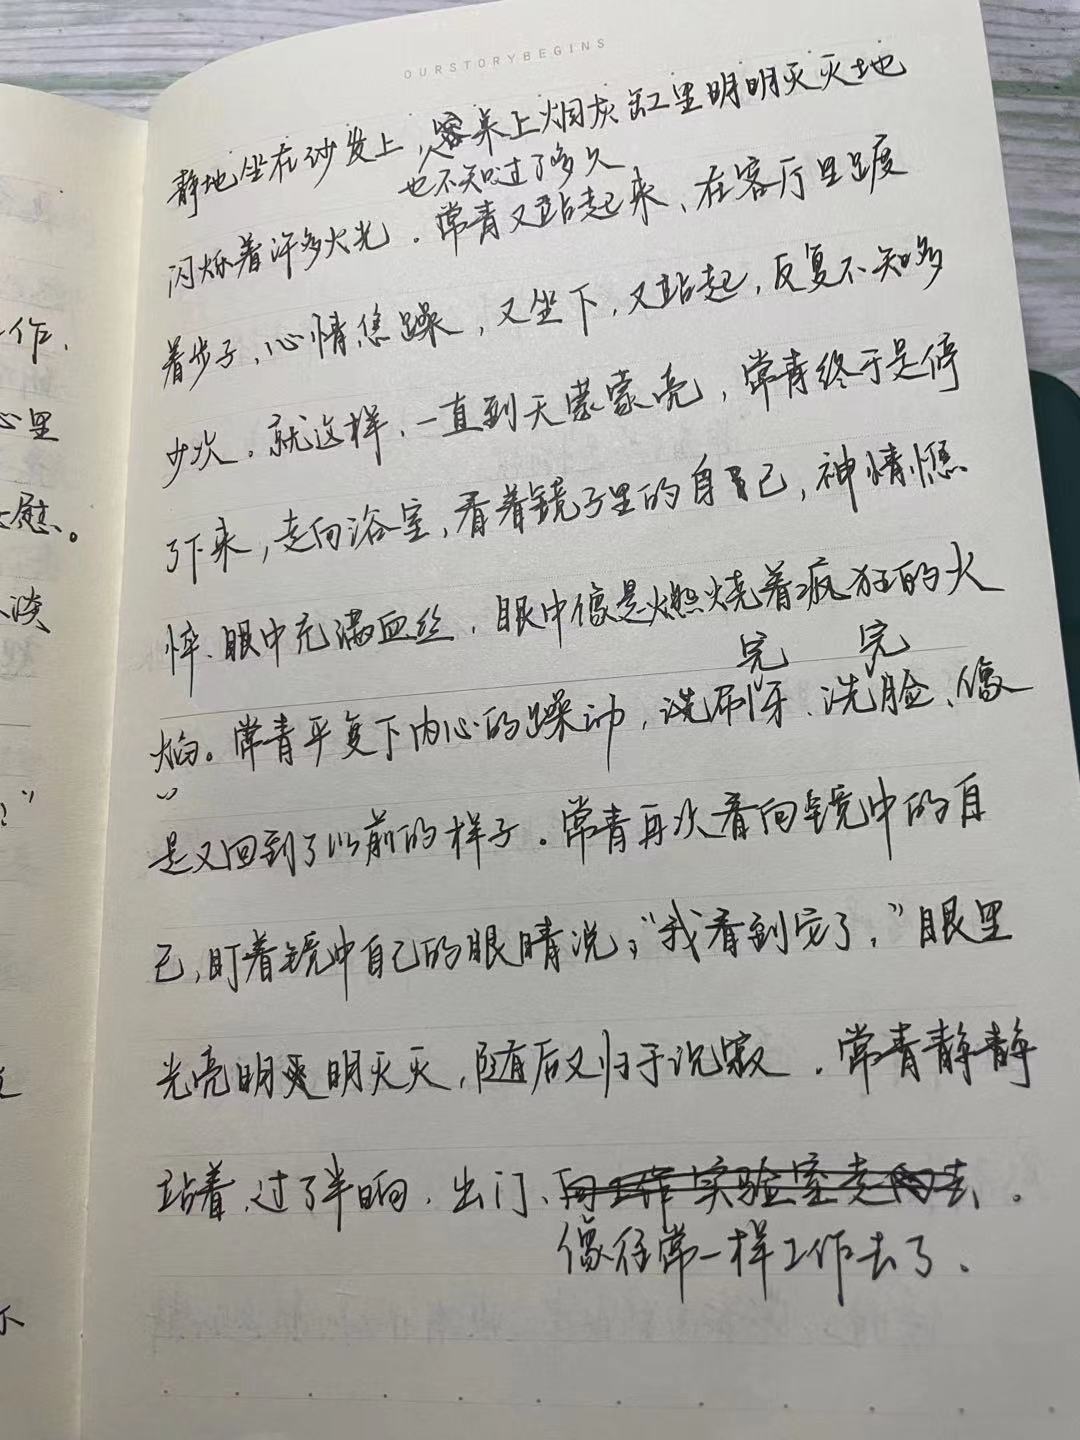 OURSTORYBEGINS
静地坐在沙发上，桌上烟灰缸里明明灭灭地
也不知过了多久
闪烁着许多火光。常青又站起来、在客厅里踱
着步子，心情焦躁，又坐下，又站起，反复不知多
少次。就这样、一直到天蒙蒙亮，常青终于是停
了下来，走向浴室，看着镜子里的自己，神情憔
悴、眼中充满血丝，眼中像是燃烧着疯狂的火
完 完
焰。常青平复下内心的躁动，洗刷牙、洗脸、像
是又回到了以前的样子。常青再次看向镜中的自
己，盯着镜中自己的眼睛说，“我看到它了，”眼里
光亮明明灭灭，随后又归于沉寂。常青静静
站着，过了半晌，出门、向工作实验室走去。
像往常一样工作去了。
作，
心里
慰。
淡
？”
不